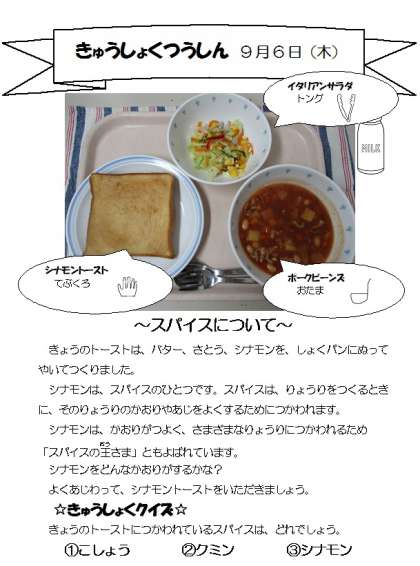 きゅうしょくつうしん ９月６日（木）
イタリアンサラダ
トング
MILK
シナモントースト
てぶくろ
ポークビーンズ
おたま
～スパイスについて～
きょうのトーストは、バター、さとう、シナモンを、しょくパンにぬって
やいてつくりました。
シナモンは、スパイスのひとつです。スパイスは、りょうりをつくるとき
に、そのりょうりのかおりやあじをよくするためにつかわれます。
シナモンは、かおりがつよく、さまざまなりょうりにつかわれるため
「スパイスの王さま」ともよばれています。
シナモンをどんなかおりがするかな？
よくあじわって、シナモントーストをいただきましょう。
☆きゅうしょくクイズ☆
きょうのトーストにつかわれているスパイスは、どれでしょう。
①こしょう ②クミン ③シナモン